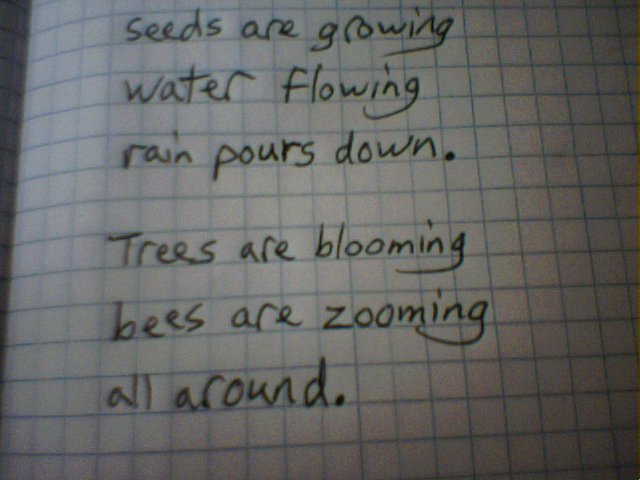 seeds are growing
water flowing
rain pours down.
Trees are blooming
bees are zooming
all around.